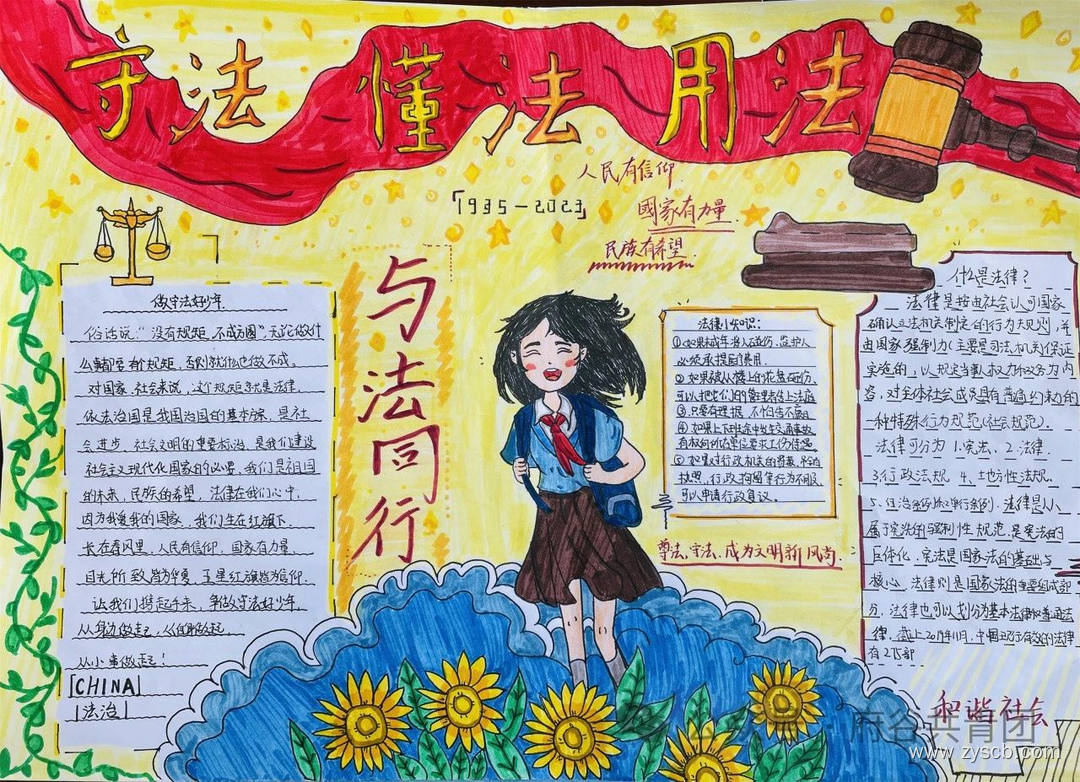 守法 懂法 用法
「1935-2023」
人民有信仰
國家有力量
民族有希望
与法同行
做守法好少年
俗话说："没有规矩,不成方圆"无论做什
么事都要有规矩,否则就什么也做不成。
对国家、社会来说,这个规矩就是法律。
依法治国是我国治国的基本方略,是社
会进步、社会文明的重要标志,是我们建设
社会主义现代化国家的必要。我们是祖国
的未来,民族的希望,法律在我们心中,
因为我爱我的国家,我们生在红旗下
长在春风里,人民有信仰,国家有力量
目光所致皆为华夏,五星红旗皆为信仰
让我们携起手来,争做守法好少年,
从身边做起,从何时做起
从小事做起!
CHINA
法治
法律小知识:
①如果未成年将人砸伤,监护人
必须承担后费用.
②如果被从楼上的花盆砸伤,
可以把它们的管理者告上法庭
有权向所在单位要求工伤待遇
可以申请行政复议。
尊法、守法、成为文明新风尚
什么是法律?
法律是指由社会认可国家
确认立法机关制定的行为规则,并
由国家强制力(主要是司法机关)保证
实施的,以规定当事人权力和义务为内
容,对全体社会成员具有普遍约束力的
一种特殊行为规范(社会规范)。
法律可分为 1.宪法、2.法律、
3.行政法规、4.地方性法规、
5.自治条例和单行条例。法律是从
属于宪法的强制性规范,是宪法的
具体化。宪法是国家法的基础与
核心,法律则是国家法的重要组成部
分,法律也可以划分为基本法律和普通法
律。
和谐社会
府谷共青团
www.zyscb.com